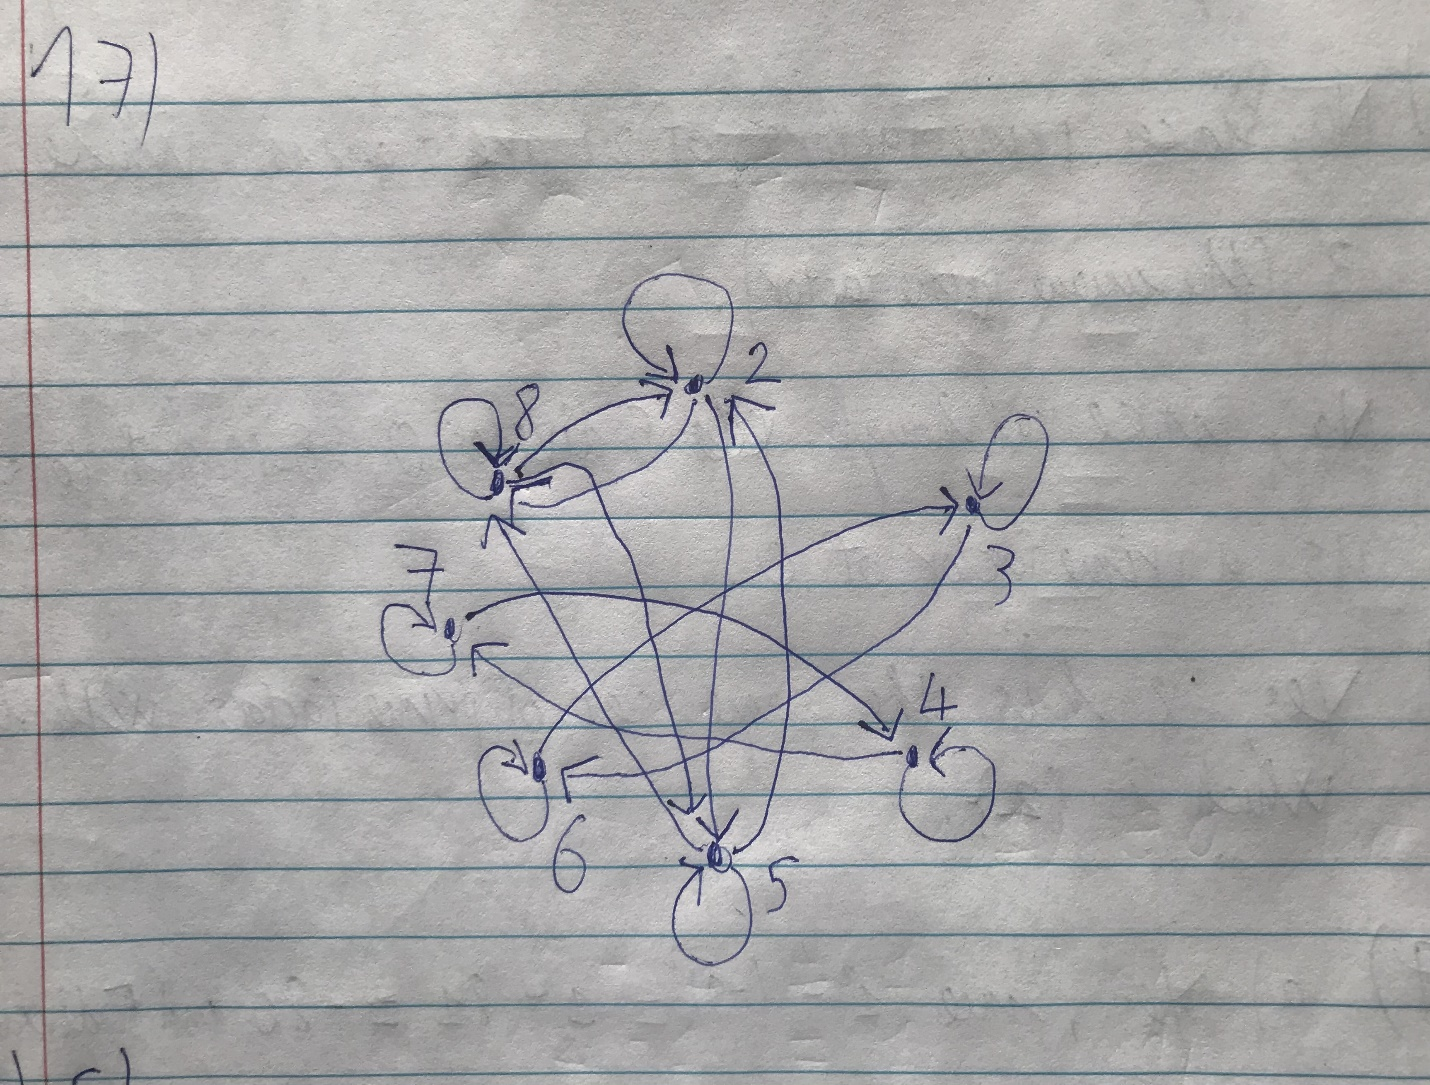 17)
2
8
3
7
4
6
5